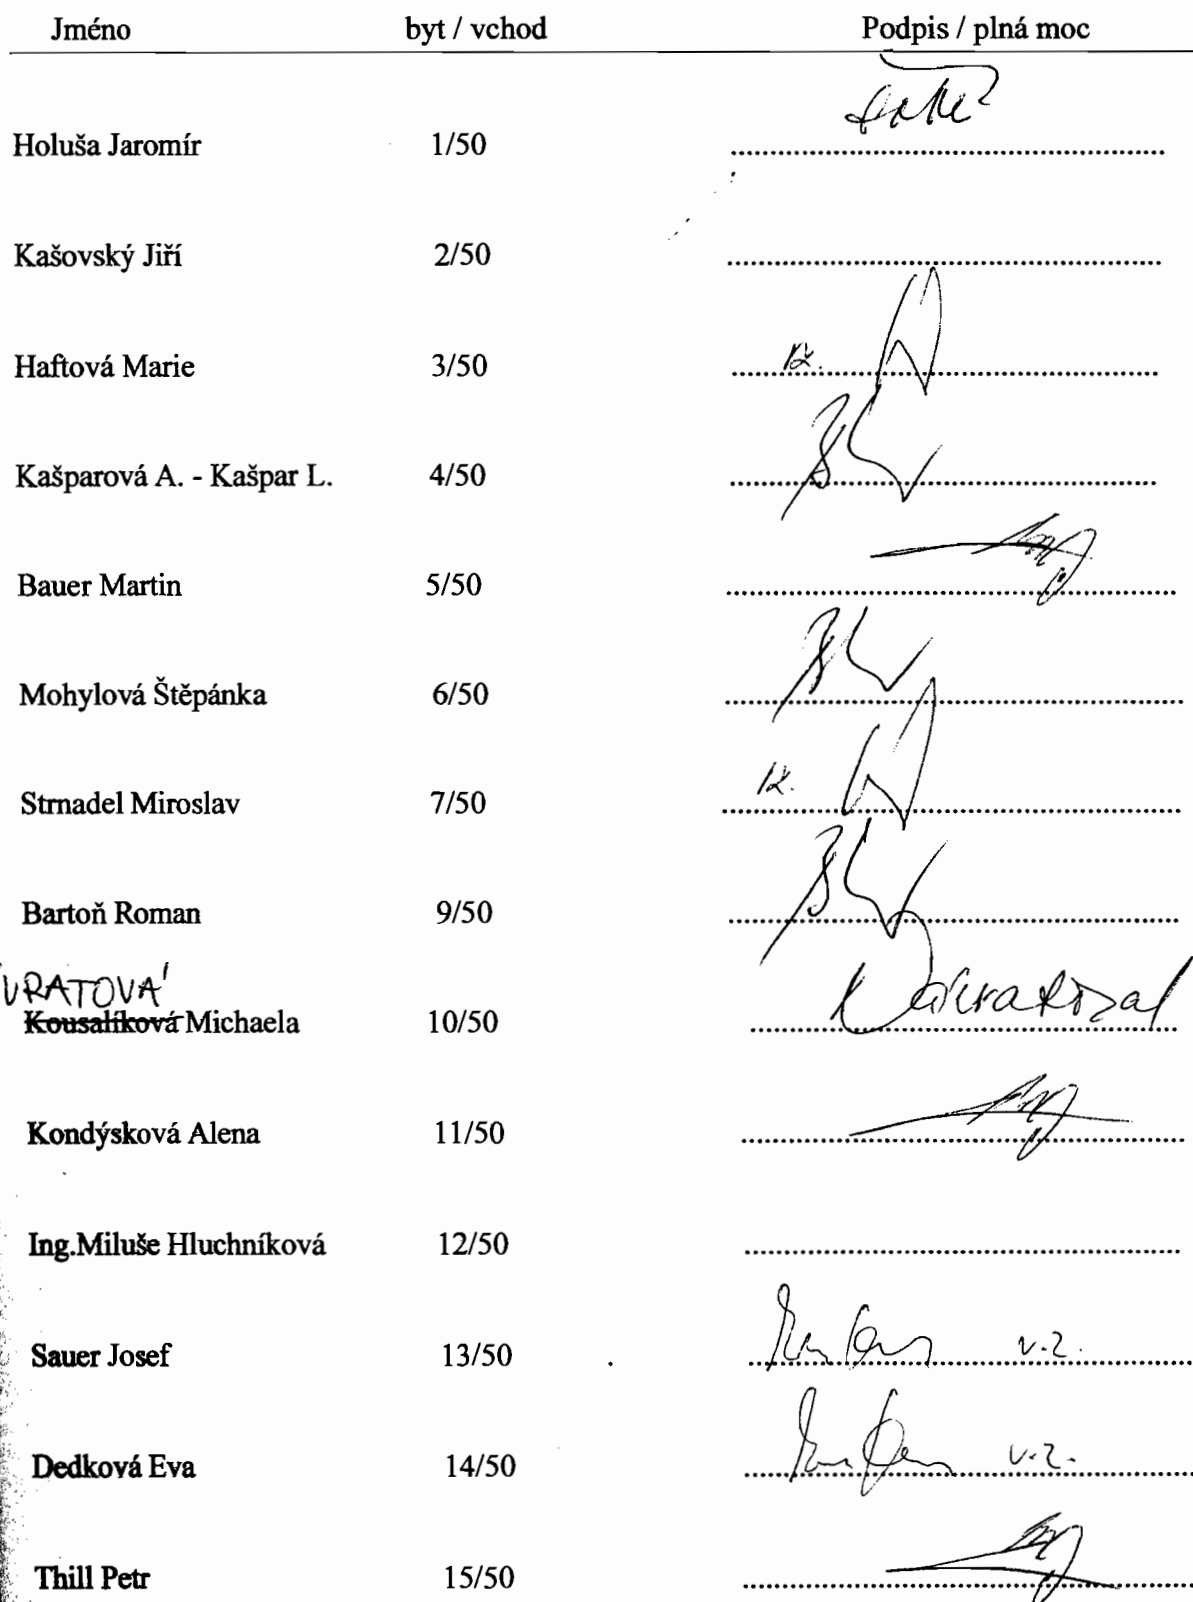 Jméno byt / vchod Podpis / plná moc
Holuša Jaromír 1/50
Kašovský Jiří 2/50
Haftová Marie 3/50
Kašparová A. - Kašpar L. 4/50
Bauer Martin 5/50
Mohylová Štěpánka 6/50
Strnadel Miroslav 7/50
Bartoň Roman 9/50
VRATOVÁ
Kousalíková Michaela 10/50
Kondýsková Alena 11/50
Ing.Miluše Hluchníková 12/50
Sauer Josef 13/50 v.z.
Dedková Eva 14/50 v.z.
Thill Petr 15/50